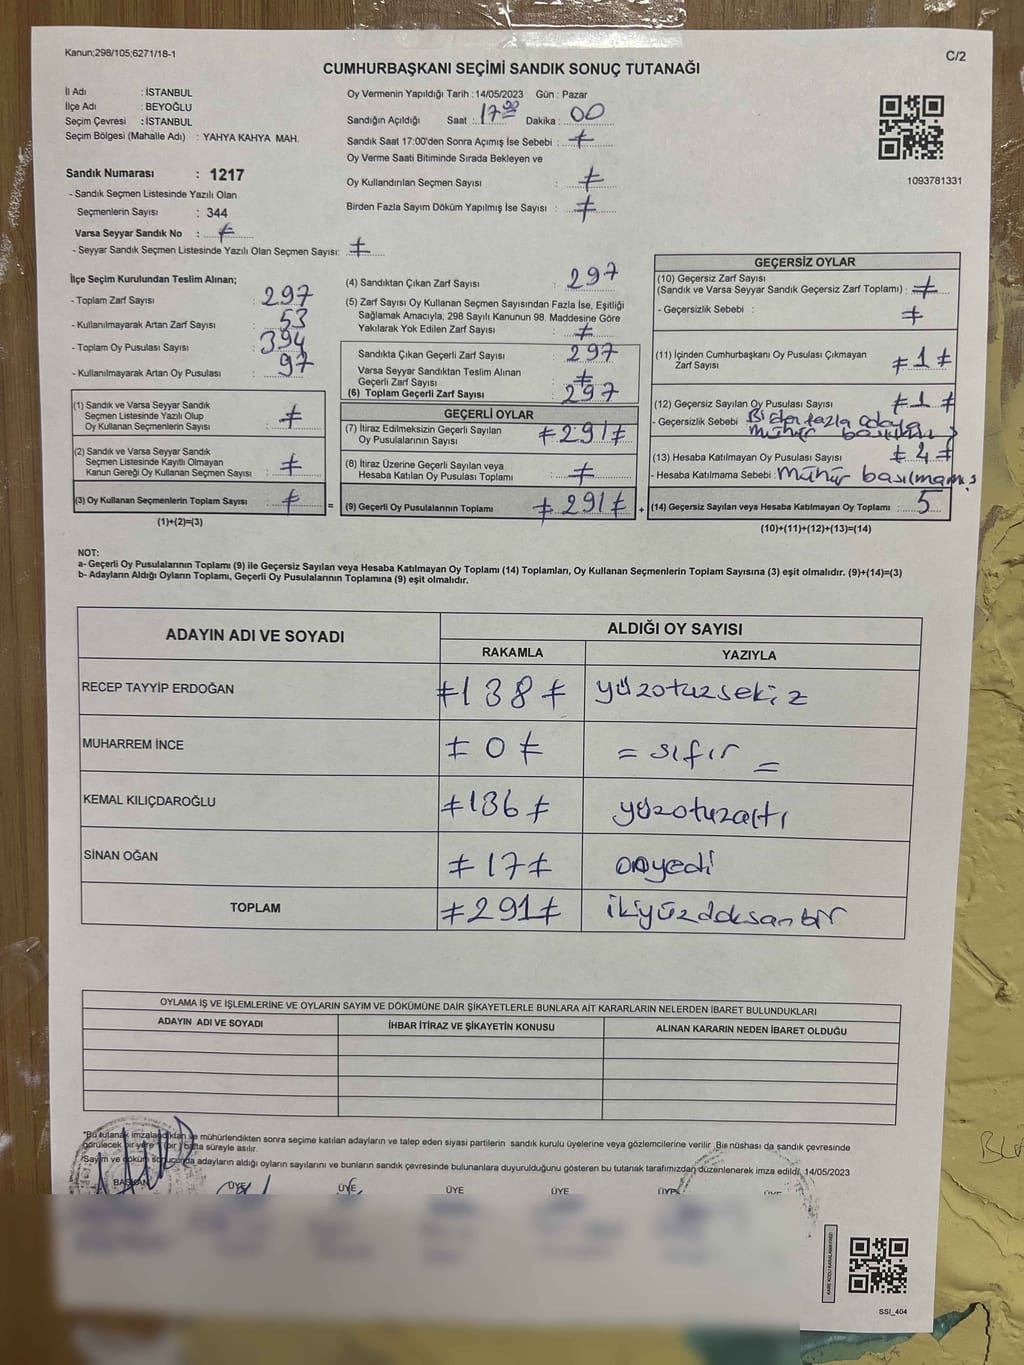 Kanun;298/105;6271/18-1
C/2
CUMHURBAŞKANI SEÇİMİ SANDIK SONUÇ TUTANAĞI
İl Adı : İSTANBUL
İlçe Adı : BEYOĞLU
Seçim Çevresi : İSTANBUL
Seçim Bölgesi (Mahalle Adı) : YAHYA KAHYA MAH.
Sandık Numarası : 1217
- Sandık Seçmen Listesinde Yazılı Olan
Seçmenlerin Sayısı : 344
Varsa Seyyar Sandık No :
- Seyyar Sandık Seçmen Listesinde Yazılı Olan Seçmen Sayısı:
Oy Vermenin Yapıldığı Tarih : 14/05/2023 Gün : Pazar
Sandığın Açıldığı Saat : 17:00 Dakika : 00
Sandık Saat 17:00'den Sonra Açımış İse Sebebi :
Oy Verme Saati Bitiminde Sırada Bekleyen ve
Oy Kullandırılan Seçmen Sayısı :
Birden Fazla Sayım Döküm Yapılmış İse Sayısı :
1093781331
İlçe Seçim Kurulundan Teslim Alınan;
- Toplam Zarf Sayısı : 297
- Kullanılmayarak Artan Zarf Sayısı : 53
- Toplam Oy Pusulası Sayısı : 394
- Kullanılmayarak Artan Oy Pusulası : 97
(1) Sandık ve Varsa Seyyar Sandık
Seçmen Listesinde Yazılı Olup
Oy Kullanan Seçmenlerin Sayısı :
(2) Sandık ve Varsa Seyyar Sandık
Seçmen Listesinde Kayıtlı Olmayan
Kanun Gereği Oy Kullanan Seçmen Sayısı :
(3) Oy Kullanan Seçmenlerin Toplam Sayısı :
(1)+(2)=(3)
(4) Sandıktan Çıkan Zarf Sayısı : 297
(5) Zarf Sayısı Oy Kullanan Seçmen Sayısından Fazla İse, Eşitliği
Sağlamak Amacıyla; 298 Sayılı Kanunun 98. Maddesine Göre
Yakılarak Yok Edilen Zarf Sayısı :
Sandıkta Çıkan Geçerli Zarf Sayısı : 297
Varsa Seyyar Sandıktan Teslim Alınan
Geçerli Zarf Sayısı :
(6) Toplam Geçerli Zarf Sayısı : 297
GEÇERLİ OYLAR
(7) İtiraz Edilmeksizin Geçerli Sayılan
Oy Pusulalarının Sayısı : 291
(8) İtiraz Üzerine Geçerli Sayılan veya
Hesaba Katılan Oy Pusulası Toplamı :
(9) Geçerli Oy Pusulalarının Toplamı : 291
GEÇERSİZ OYLAR
(10) Geçersiz Zarf Sayısı
(Sandık ve Varsa Seyyar Sandık Geçersiz Zarf Toplamı) :
- Geçersizlik Sebebi :
(11) İçinden Cumhurbaşkanı Oy Pusulası Çıkmayan
Zarf Sayısı : 1
(12) Geçersiz Sayılan Oy Pusulası Sayısı : 1
- Geçersizlik Sebebi Birden fazla adaya
mühür basılması
(13) Hesaba Katılmayan Oy Pusulası Sayısı : 4
- Hesaba Katılmama Sebebi : mühür basılmamış
(14) Geçersiz Sayılan veya Hesaba Katılmayan Oy Toplamı : 5
(10)+(11)+(12)+(13)=(14)
NOT:
a- Geçerli Oy Pusulalarının Toplamı (9) ile Geçersiz Sayılan veya Hesaba Katılmayan Oy Toplamı (14) Toplamları, Oy Kullanan Seçmenlerin Toplam Sayısına (3) eşit olmalıdır. (9)+(14)=(3)
b- Adayların Aldığı Oyların Toplamı, Geçerli Oy Pusulalarının Toplamına (9) eşit olmalıdır.
ADAYIN ADI VE SOYADI ALDIĞI OY SAYISI
RAKAMLA YAZIYLA
RECEP TAYYİP ERDOĞAN 138 yüzotuzsekiz
MUHARREM İNCE 0 = sıfır =
KEMAL KILIÇDAROĞLU 136 yüzotuzaltı
SİNAN OĞAN 17 onyedi
TOPLAM 291 ikiyüzdoksanbir
OYLAMA İŞ VE İŞLEMLERİNE VE OYLARIN SAYIM VE DÖKÜMÜNE DAİR ŞİKAYETLERLE BUNLARA AİT KARARLARIN NELERDEN İBARET BULUNDUKLARI
ADAYIN ADI VE SOYADI İHBAR İTİRAZ VE ŞİKAYETİN KONUSU ALINAN KARARIN NEDEN İBARET OLDUĞU
*Bu tutanak imzalandıktan ve mühürlendikten sonra seçime katılan adayların ve talep eden siyasi partilerin sandık kurulu üyelerine veya gözlemcilerine verilir. Bir nüshası da sandık çevresinde
görülecek bir yere 1 (bir) hafta süreyle asılır.
*Sayım ve döküm sonucunda adayların aldığı oyların sayılarını ve bunların sandık çevresinde bulunanlara duyurulduğunu gösteren bu tutanak tarafımızdan düzenlenerek imza edildi. 14/05/2023
BAŞKAN ÜYE ÜYE ÜYE ÜYE ÜYE ÜYE
SSI_404